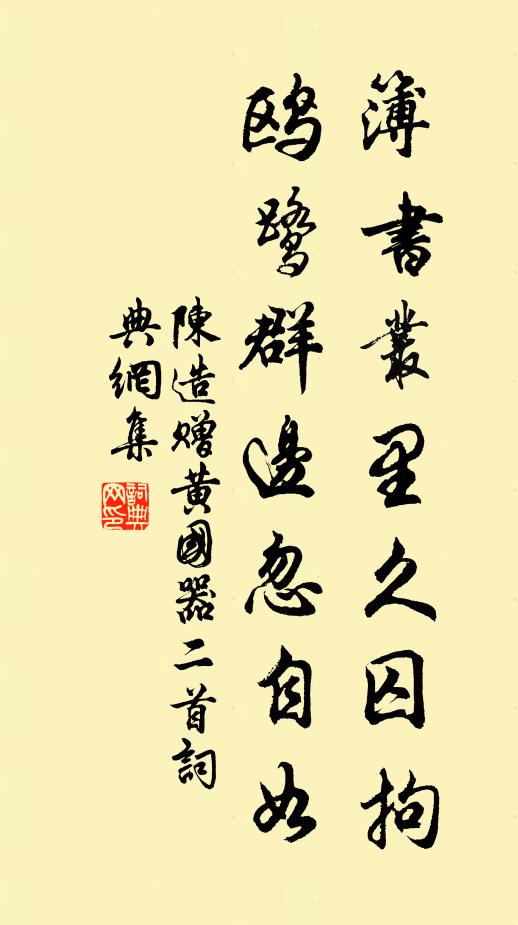 簿書叢里久囚拘
鸥鹭群邊忽自如
陳造赠黄國器二首詞
典網集
詞典网印